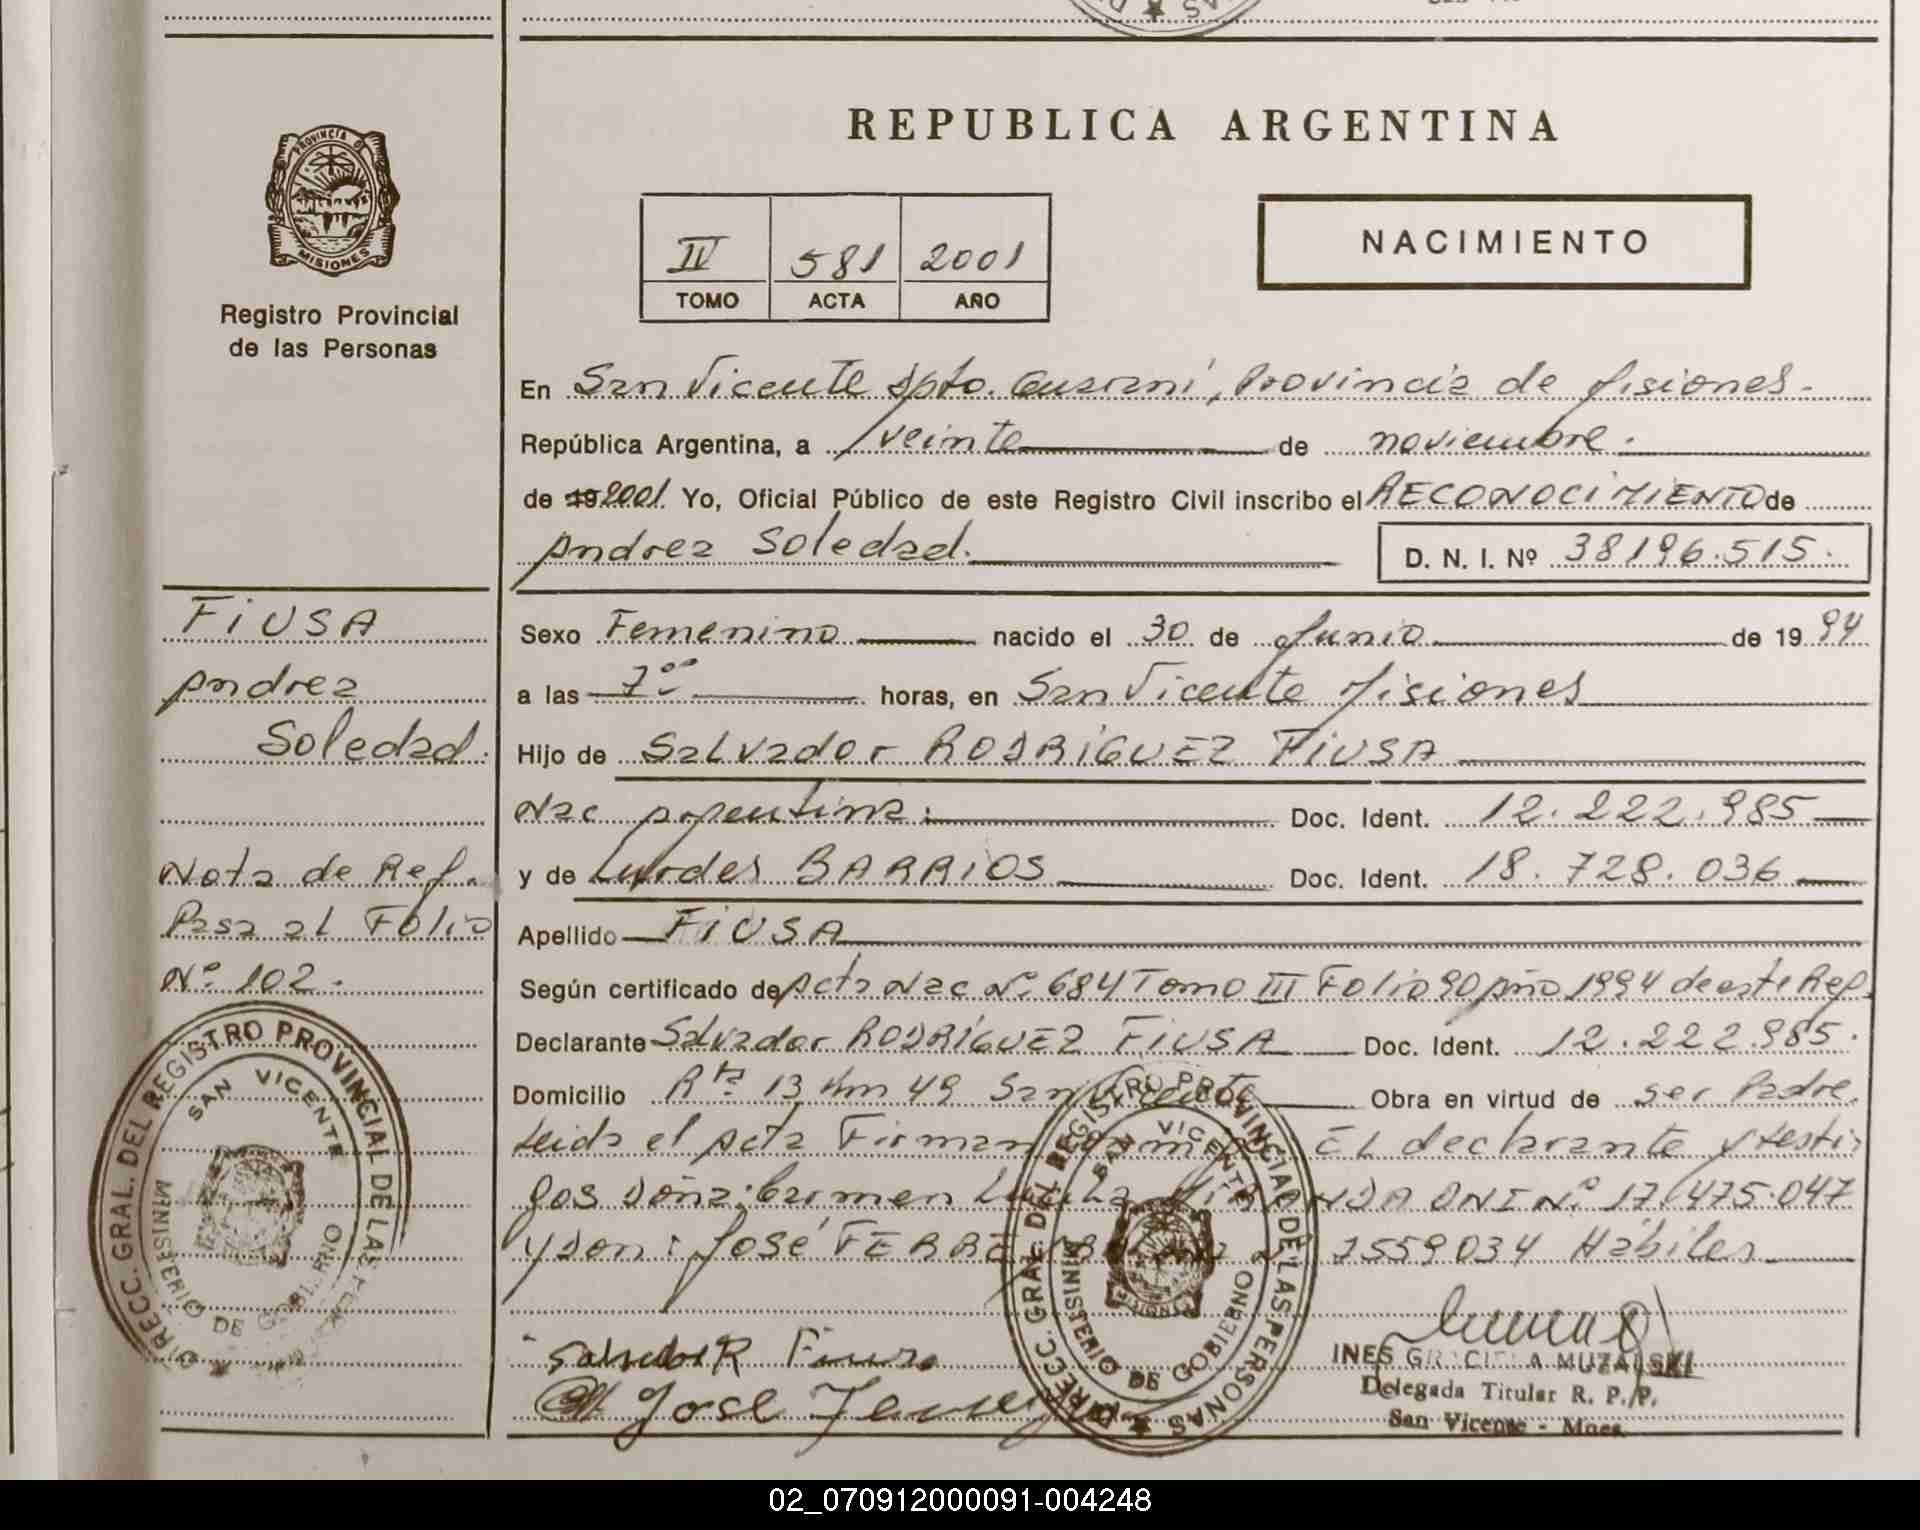 REPUBLICA ARGENTINA
PROVINCIA D
MISIONES
Registro Provincial
de las Personas
II 581 2001
TOMO ACTA AÑO
NACIMIENTO
En San Vicente Dpto. Guaraní, Provincia de Misiones.
República Argentina, a veinte de noviembre.
de 19 2001. Yo, Oficial Público de este Registro Civil inscribo el RECONOCIMIENTO de
Andrea Soledad.
D. N. I. Nº 38196.515.
FIUSA
Andrea
Soledad.
Nota de Ref.
Pasa al Folio
Nº 102.
Sexo Femenino nacido el 30 de Junio de 19 94
a las 7 00 horas, en San Vicente Misiones
Hijo de Salvador RODRÍGUEZ FIUSA
Nac Argentina. Doc. Ident. 12.222.985
y de Lurdes BARRIOS Doc. Ident. 18.728.036
Apellido FIUSA
Según certificado de Acta Nac Nº 684 Tomo III Folio 90 Año 1994 de este Reg.
Declarante Salvador RODRÍGUEZ FIUSA Doc. Ident. 12.222.985.
Domicilio Rta 13 Km 49 San Vicente Obra en virtud de ser Padre.
Leida el Acta Firman El declarante y testi
gos Doña: Carmen DNI Nº 17.475.047
y Don: José 7559034 Hábiles
Salvador Fiusa
Jose
INES GRACIELA MUZALSKI
Delegada Titular R. P. P.
San Vicente - Mnes.
DIRECC. GRAL. DEL REGISTRO PROVINCIAL DE LAS
SAN VICENTE
MINISTERIO DE GOBIERNO
DIRECC. GRAL. DEL REGISTRO PROVINCIAL DE LAS PERSONAS
SAN VICENTE
MINISTERIO DE GOBIERNO
02_070912000091-004248